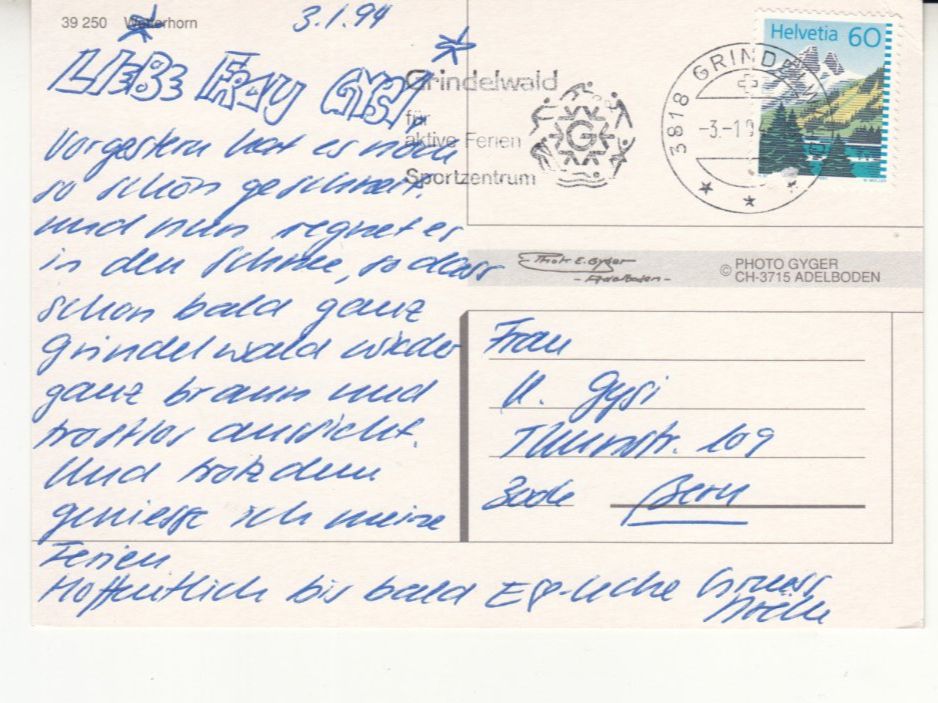 39 250 Wetterhorn
3.1.94
LIEBE FRAU GYSI,
Vorgestern hat es noch
so schön geschneit,
und nun regnet es
in den Schnee, so dass
schon bald ganz
Grindelwald wieder
ganz braun und
trostlos aussieht.
Und trotzdem
geniesse ich meine
Ferien
Hoffentlich bis bald
Grindelwald
für
aktive Ferien
Sportzentrum
G
3818 GRINDELWALD
-3.-1.94
Helvetia 60
Thor E. Gyger
- Adelboden -
© PHOTO GYGER
CH-3715 ADELBODEN
Frau
U. Gysi
Thunstr. 109
Bern